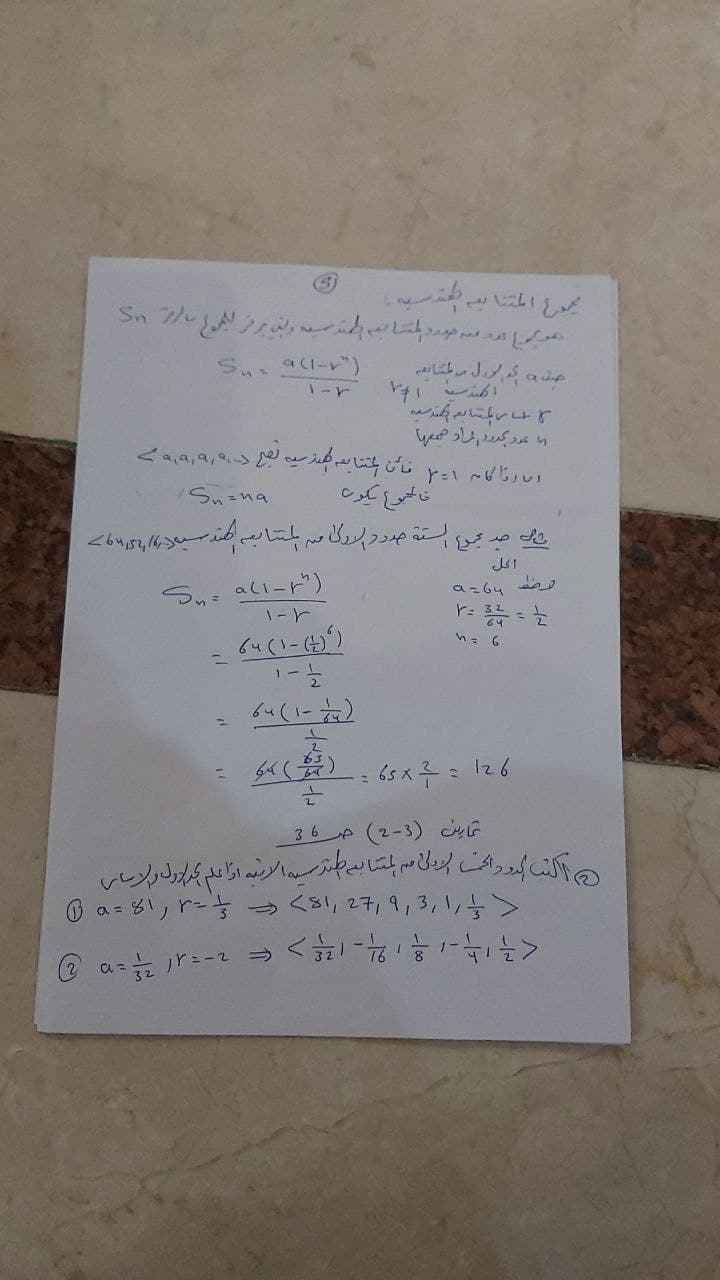 ⑤
مجموع المتتابعه الهندسيه :
هو مجموع عدد من حدود المتتابعه الهندسيه والتي يرمز للمجموع بالرمز Sn
Sn = a(1-r^n) / 1-r
حيث a الحد الاول من المتتابعه
الهندسيه r≠1
r اساس المتتابعه الهندسيه
n عدد الحدود المراد جمعها
اما اذا كانت r=1 فأن المتتابعه الهندسيه تصبح <a,a,a,a,..>
فالمجموع يكون Sn=na
مثال جد مجموع الستة حدود الاولى من المتتابعه الهندسيه <64,32,16,..>
الحل
a=64
r= 32/64 = 1/2
n= 6
Sn= a(1-r^n) / 1-r
= 64(1-(1/2)^6) / 1-1/2
= 64(1-1/64) / 1/2
= 64(63/64) / 1/2 = 63 × 2/1 = 126
تمارين (2-3) ص 36
② اكتب الحدود الخمسة الاولى من المتتابعه الهندسيه الاتيه اذا علم الحد الاول والاساس
① a=81, r=1/3 ⇒ <81, 27, 9, 3, 1, 1/3>
② a=1/32, r=-2 ⇒ <1/32, -1/16, 1/8, -1/4, 1/2>